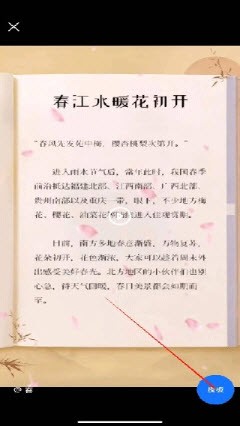 春江水暖花初开
“春风先发苑中梅，樱杏桃梨次第开。”
进入雨水节气后，常年此时，我国春季
前沿抵达福建北部、江西南部、广西北部、
贵州南部以及重庆一带，眼下，不少地方梅
花、樱花、油菜花
进入佳观赏期。
目前，南方多地春意渐盛，万物复苏，
花朵初开，花色渐浓，大家可以趁着周末外
出感受美好春光。北方地区的小伙伴们也别
心急，待天气回暖，春日美景都会如期而
至。